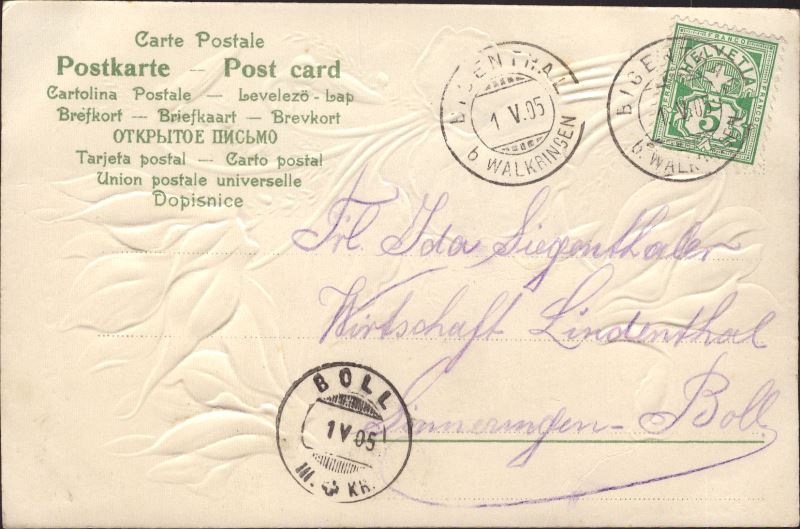 Carte Postale
Postkarte — Post card
Cartolina Postale — Levelező-Lap
Brefkort — Briefkaart — Brevkort
ОТКРЫТОЕ ПИСЬМО
Tarjeta postal — Carto postal
Union postale universelle
Dopisnice
BIGENTHAL
1 V.05
b. WALKRINGEN
BIGEN
1 V.05
b. WALK
FRANCO
HELVETIA
5
Frl. Ida Siegenthaler
Wirtschaft Lindenthal
Sinneringen-Boll
BOLL
1 V 05
III. KR.